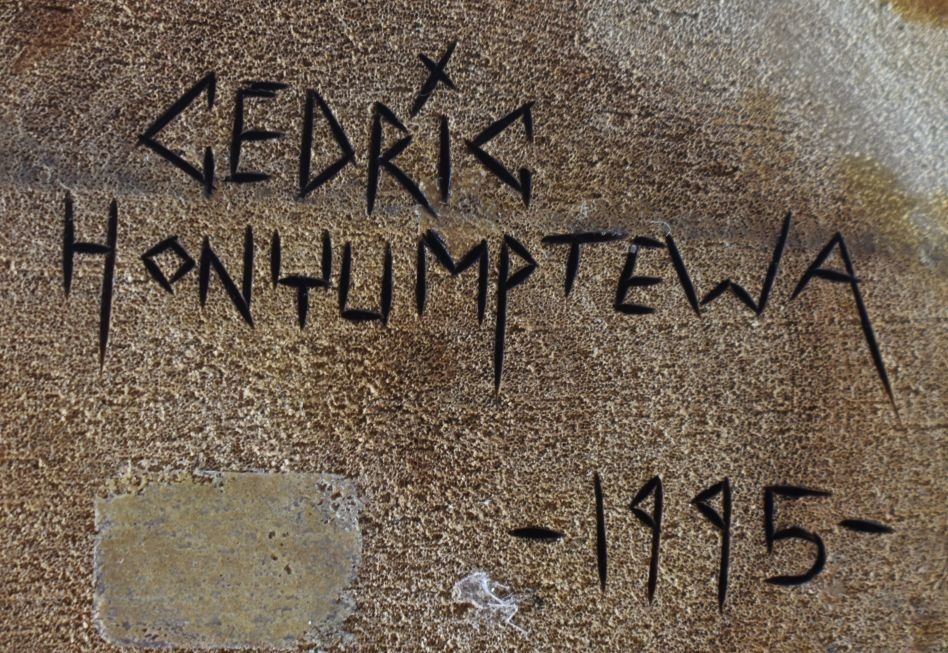 CEDRIC
HONYUMPTEWA
-1995-